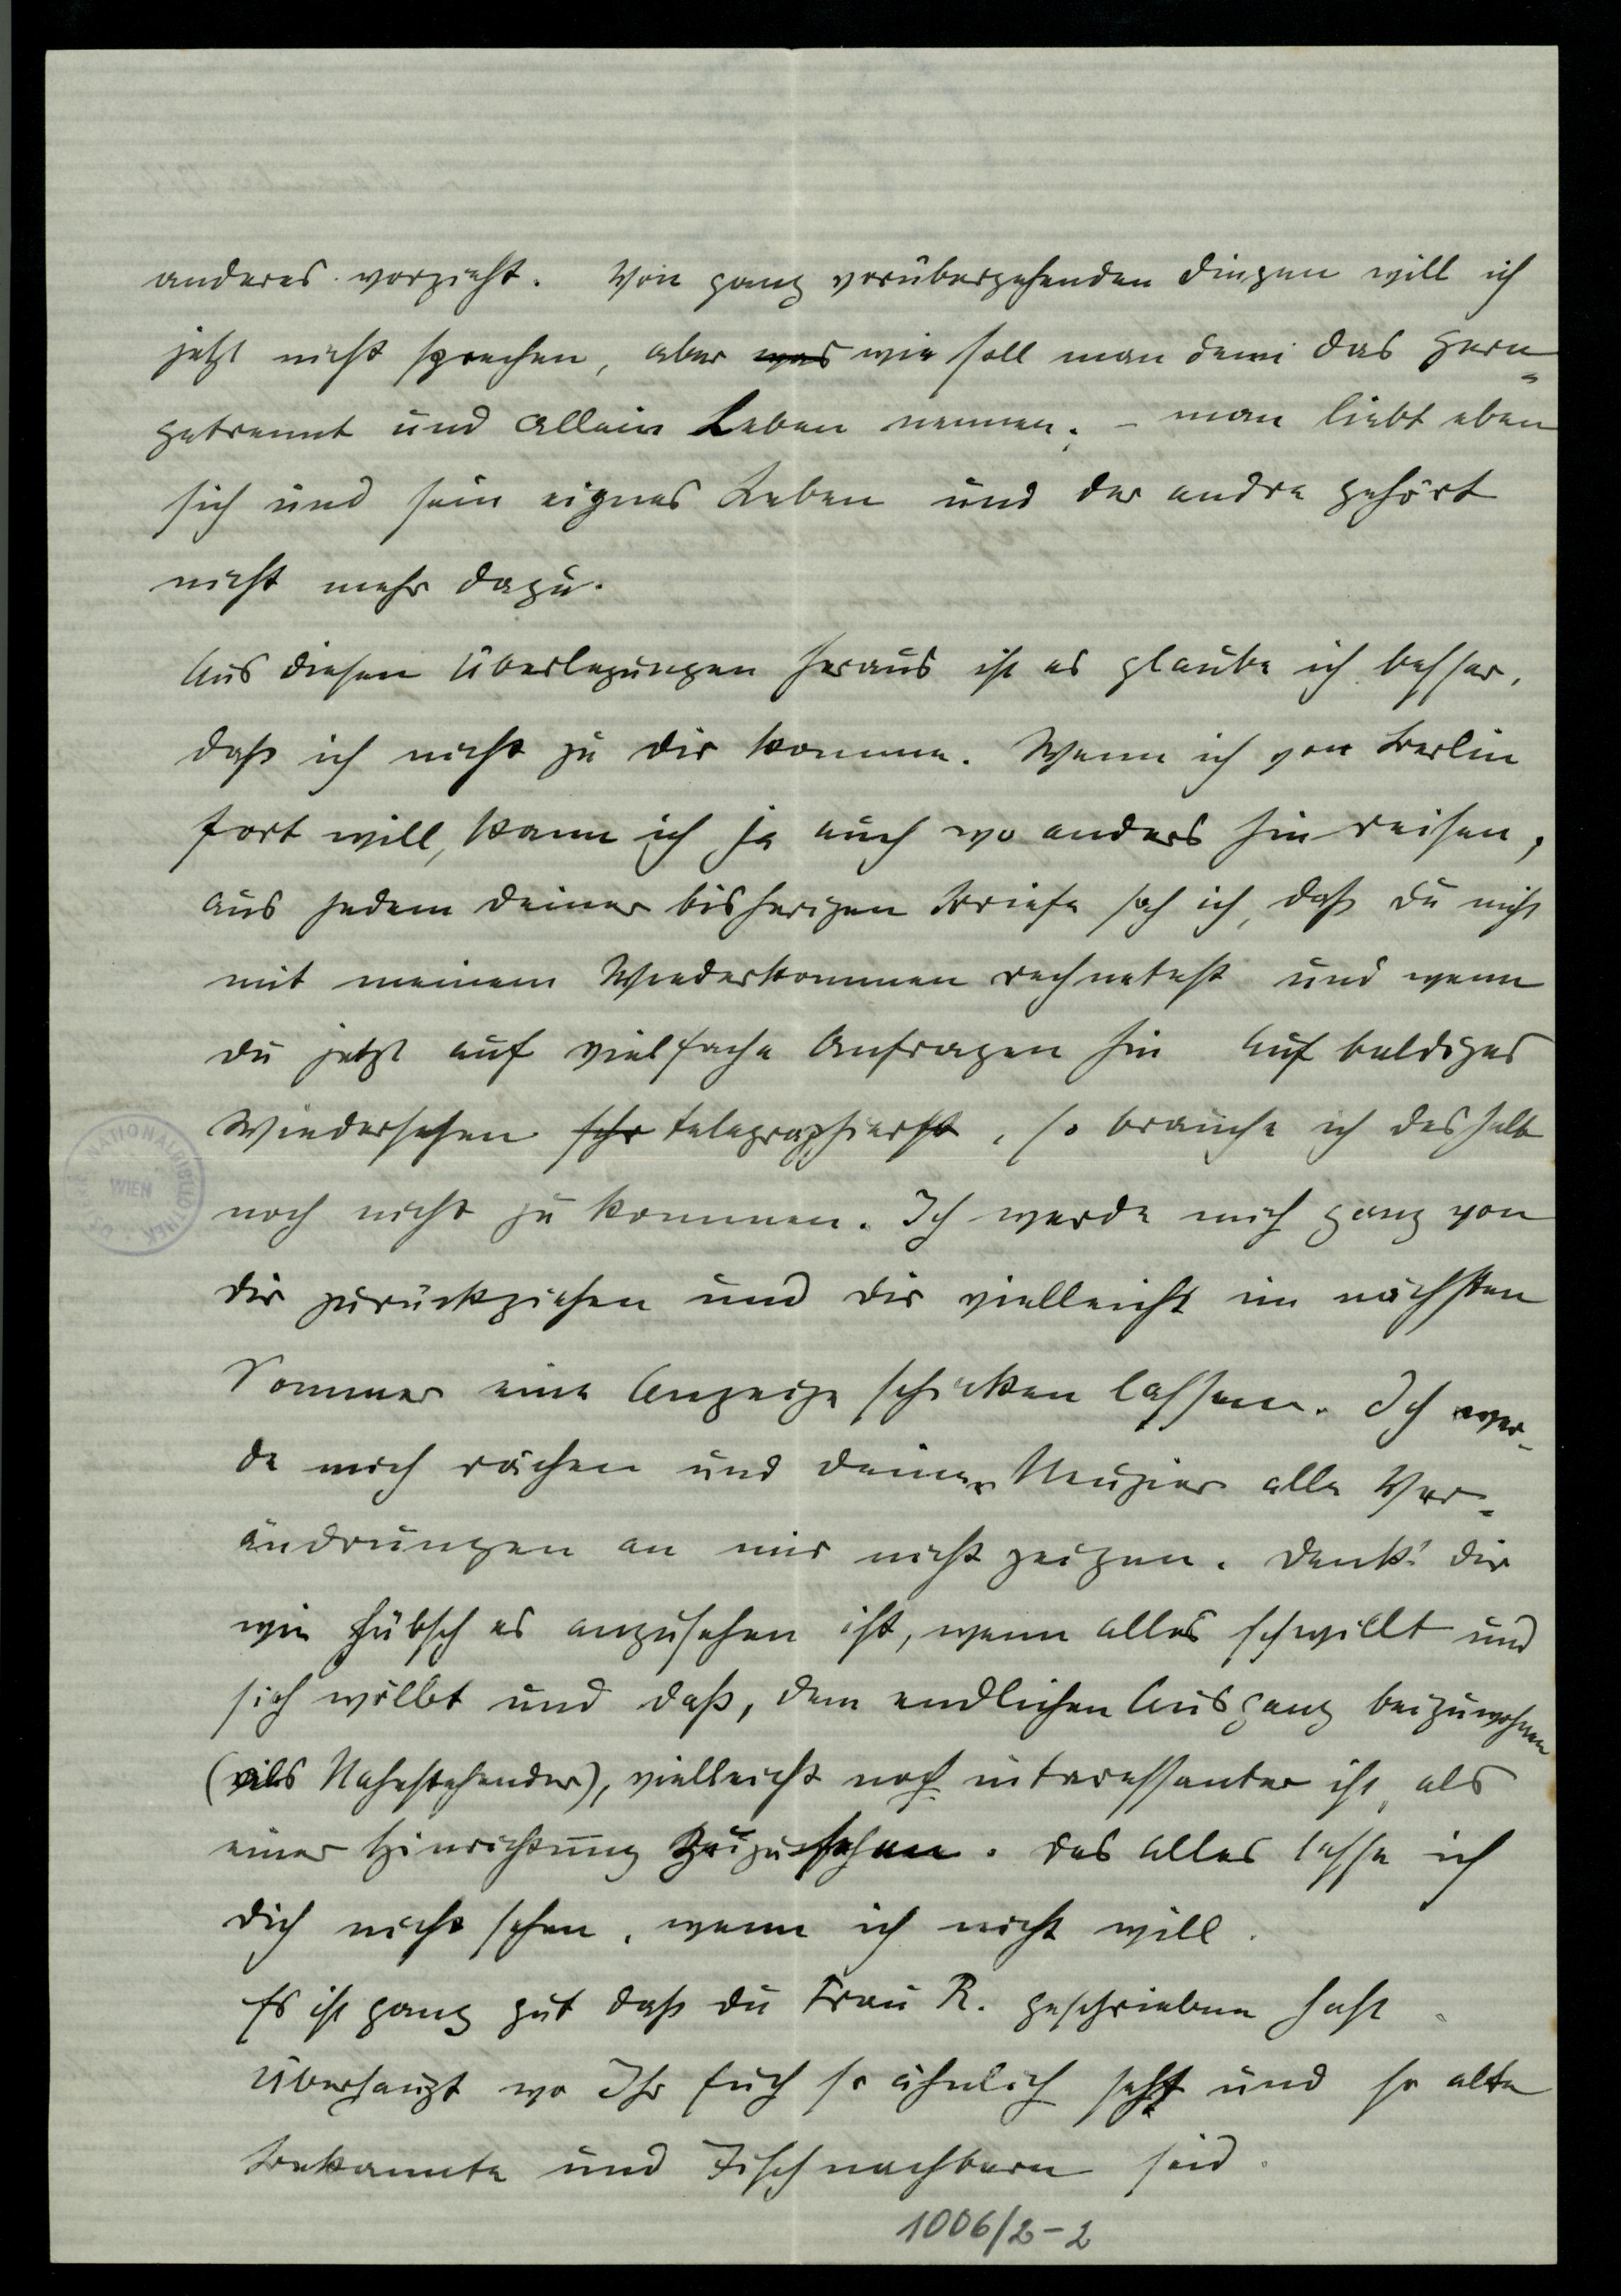 anderes vorzieht. Von ganz vorübergehenden Dingen will ich
jetzt nicht sprechen, aber was wie soll man denn das gern
getrennt und allein Leben nennen. – man liebt eben
sich und sein eignes Leben und der andre gehört
nicht mehr dazu.
Aus diesen Überlegungen heraus ist es glaube ich besser,
daß ich nicht zu dir komme. Wenn ich von Berlin
fort will, kann ich ja auch wo anders hin reisen,
aus jedem deiner bisherigen Briefe sah ich, daß du nicht
mit meinem Wiederkommen rechnetest und wenn
du jetzt auf vielfache Anfragen hin auf baldiges
Wiedersehen schr telegraphierst, so brauche ich deshalb
noch nicht zu kommen. Ich werde mich ganz von
dir zurückziehen und dir vielleicht im nächsten
Sommer eine Anzeige schicken lassen. Ich wer-
de mich rächen und deiner Neugier alle Ver=
ändrungen an mir nicht zeigen. Denk' dir
wie hübsch es anzusehen ist, wenn alles schwillt und
sich wölbt und daß, dem endlichen Ausgang beizuwohnen
(als Nahestehender), vielleicht noch interessanter ist, als
einer Hinrichtung beizusehen. Das alles lasse ich
dich nicht sehen, wenn ich nicht will.
Es ist ganz gut daß du Frau R. geschrieben hast
überhaupt wo Ihr Euch so ähnlich seht und so alte
Bekannte und Tischnachbarn seid.
1006/2-2
NATIONALBIBLIOTHEK
WIEN